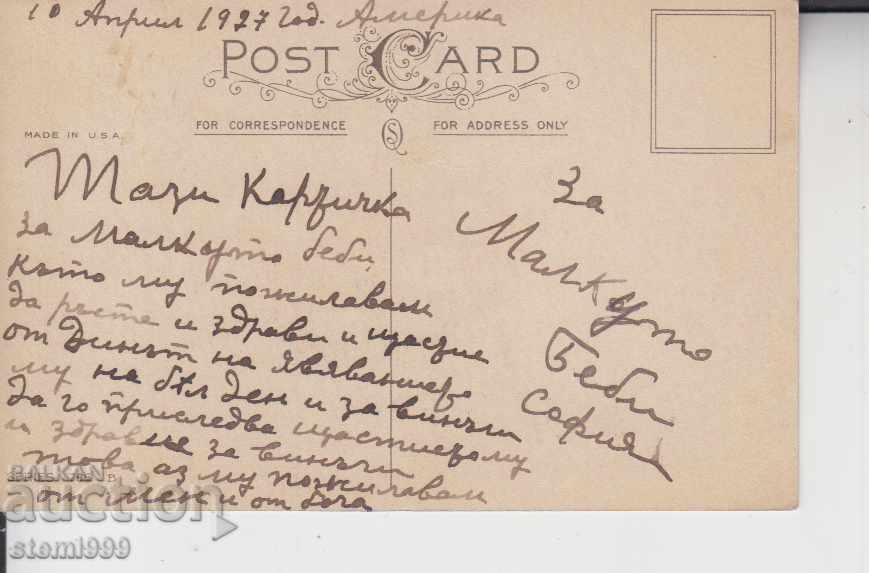 10 Април 1927 Год. Америка
POST CARD
FOR CORRESPONDENCE
FOR ADDRESS ONLY
MADE IN U.S.A.
Тази Картичка
за Малкото беби
като му пожилавам
да расте и здрави и щасзие
от Динът на явяваниео
му на бял ден и за винъги
да го приследва щастиео му
и здравие за винъги
това аз му пожилавам
от мен и от бога
За
Малкото
Беби
София
SERIES
BALKAN
auction
stomi999